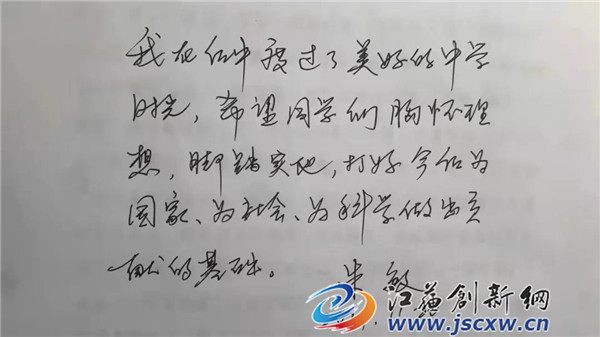 我在仪中度过了美好的中学
时光，希望同学们胸怀理
想，脚踏实地，打好今后为
国家、为社会、为科学做出贡
献的基础。 朱敏
江苏创新网
www.jscxw.cn